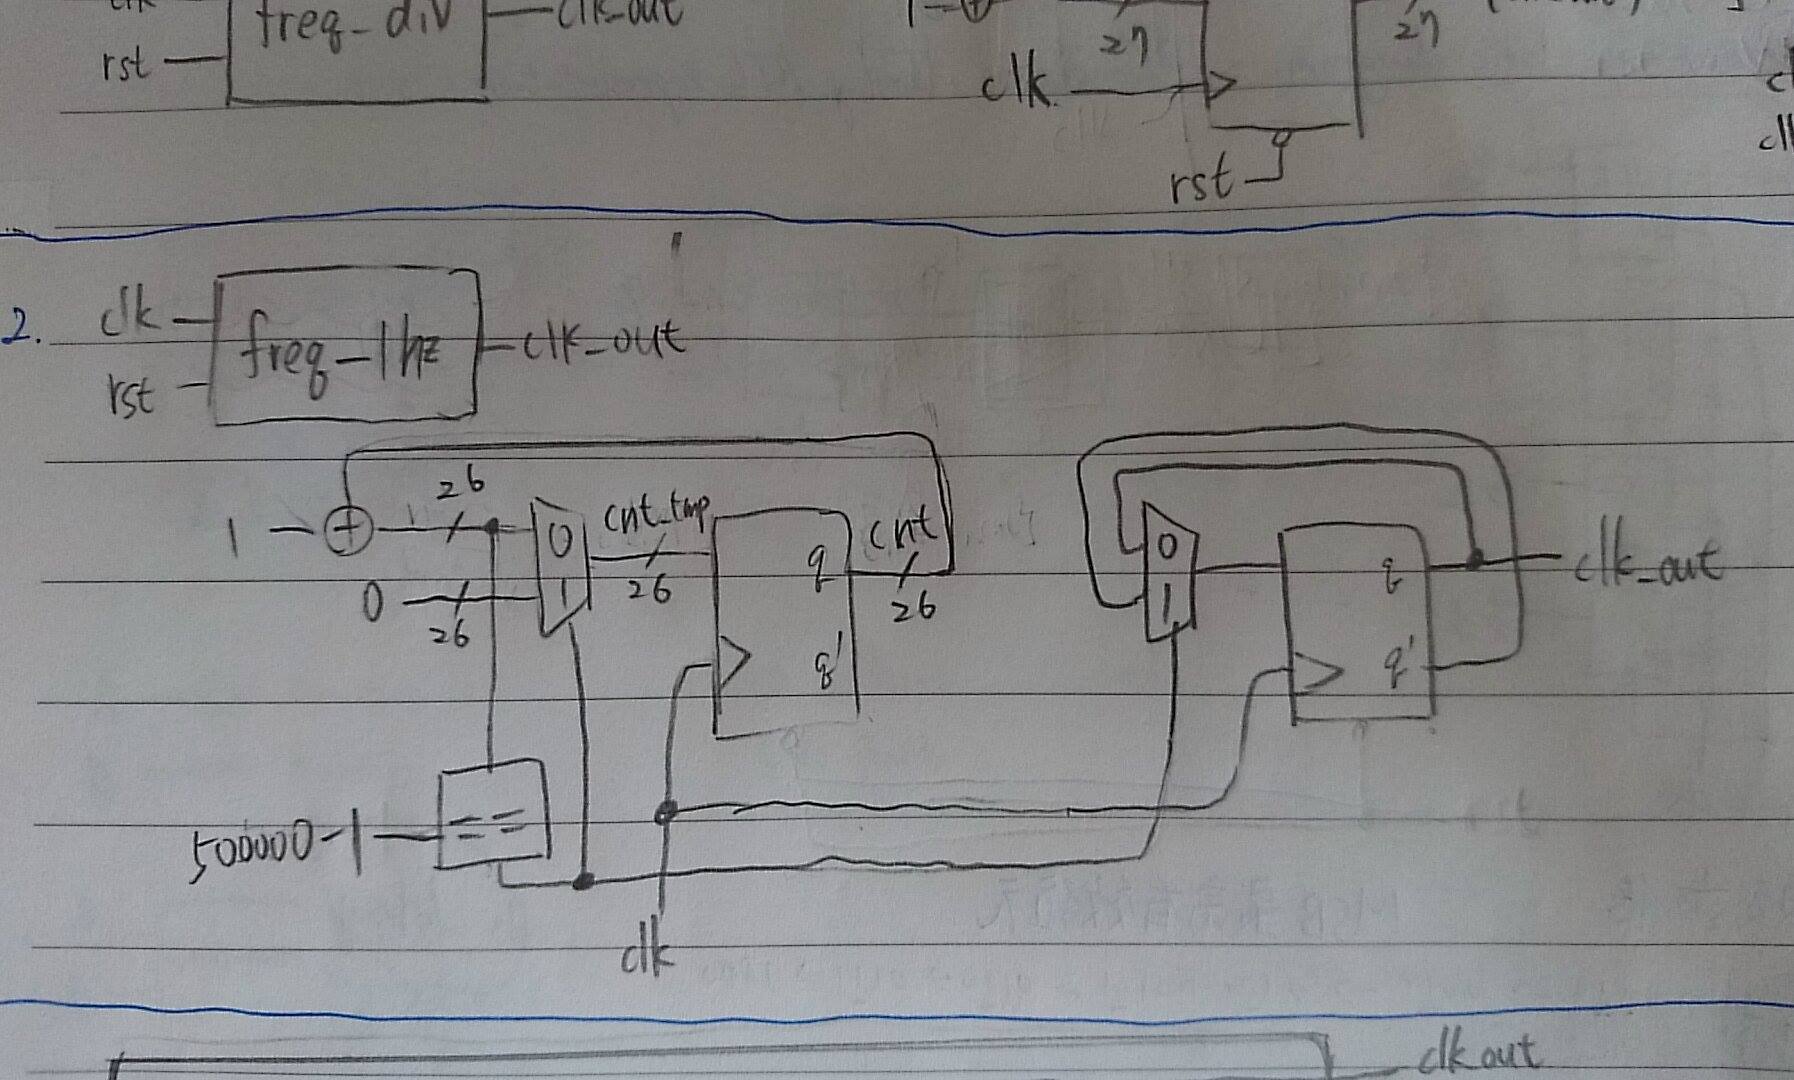 clk
freq_div
clk_out
rst
1
27
27
clk
rst
2.
clk
freq_1hz
clk_out
rst
26
1
0
cnt_tmp
q
cnt
26
0
26
1
26
q'
0
1
q
q'
clk_out
500000-1
==
clk
clk out